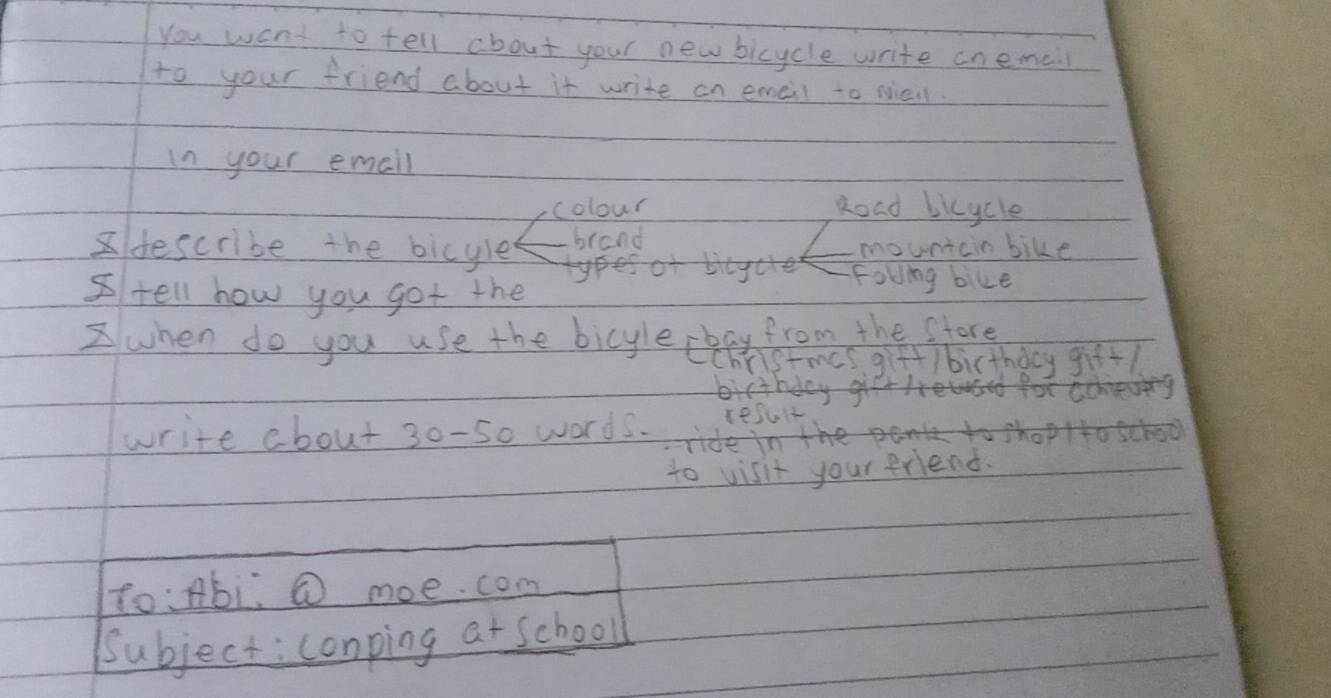 you want to tell about your new bicycle write an email
to your friend about it write an email to
in your email
describe the bicyle
colour
brand
types of bicycle
Road bicycle
mountain bike
folling bike
tell how you got the
when do you use the bicyle
bay from the store
Christmas gift/birthday gift/
birthday gift/reward for achieving
result
write about 30-50 words.
ride in the park to shop/to school
to visit your friend.
To: Abi: @ moe.com
Subject: conping at school